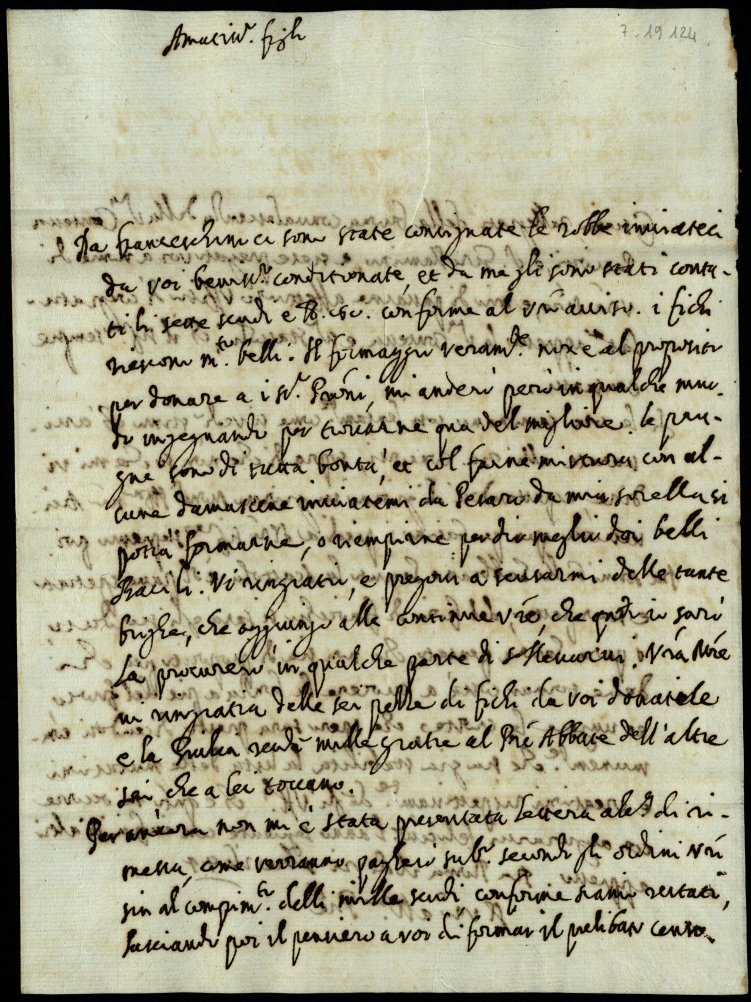 Amatiss.ᵐⁱ figli
7.19 124
Da franceschini ci sono state consignate le robbe inviateci
da voi beniss.º conditionate, et da me gli sono stati conta-
ti li sette scudi e conforme al vrō aviso. i fichi
riescono m.ᵗᵒ belli. Il formaggio veram.ᵗᵉ non è al proposito
per donare a i Sʳ. Prōni, mi anderò però in qualche mo-
do ingegnando per trovarne qua del migliore. le pru-
gne sono di tutta bontà, et col farne mistura con al-
cune damascene inviatemi da Pesaro da mia sorella si
potrà formarne, o riempirne per dir meglio doi belli
Bacili. Vi ringratio, e pregovi a scusarmi delle tante
brighe, che aggiungo alle continue vrē, che qnd̄o io sarò
là procurerò in qualche parte di sollevarvi. Vrā Mrē
vi ringratia delle sei pelle di fichi da voi donatele
e la Giulia rende mille gratie al Prē Abbate dell'altre
sei che a lei toccano.
Per ancora non mi è stata presentata lettera alc.ª di ri-
messa, come verranno pagherò sub.º secondo gli ordini vrī
sin al compim.ᵗᵒ delli mille scudi conforme siamo restati,
lasciando poi il pensiero a voi di formar il prelibato censo.